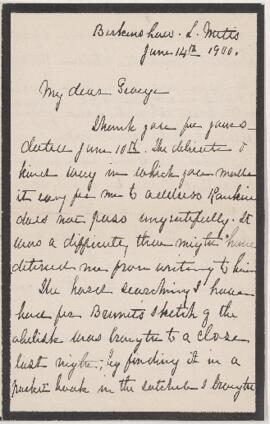 Birkenshaw. L. Metis
June 14th 1900.
My dear George
Thank you for yours
dated June 10th. The delicate &
kind way in which you made
it easy for me to address Rankine
does not pass ungratefully. It
was a difficulty that might have
deterred me from writing to him
The hard searching I have
had for Brunet's sketch of the
obelisk was brought to a close
last night; by finding it in a
pocket book in the satchel I brought